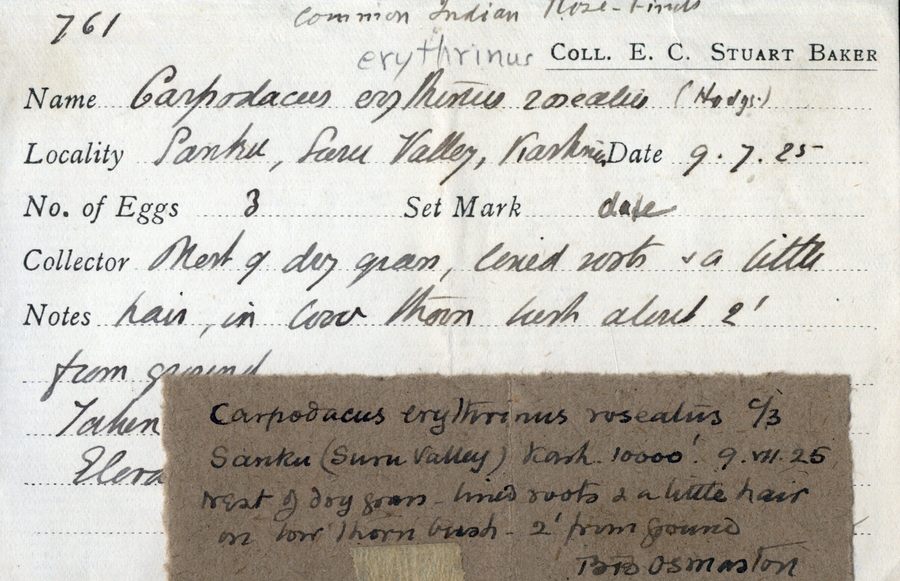 761
Common Indian Rose-Finch
erythrinus COLL. E. C. STUART BAKER
Name Carpodacus erythrinus roseatus (Hodgs.)
Locality Sanku, Suru Valley, Kashmir Date 9.7.25
No. of Eggs 3 Set Mark date
Collector Nest of dry grass, lined roots & a little
Notes hair, in low thorn bush about 2'
from ground
Taken
Eleva
Carpodacus erythrinus roseatus c/3
Sanku (Suru Valley) Kash. 10000'. 9.VII.25
Nest of dry grass - lined roots & a little hair
in low thorn bush - 2' from ground
BB Osmaston